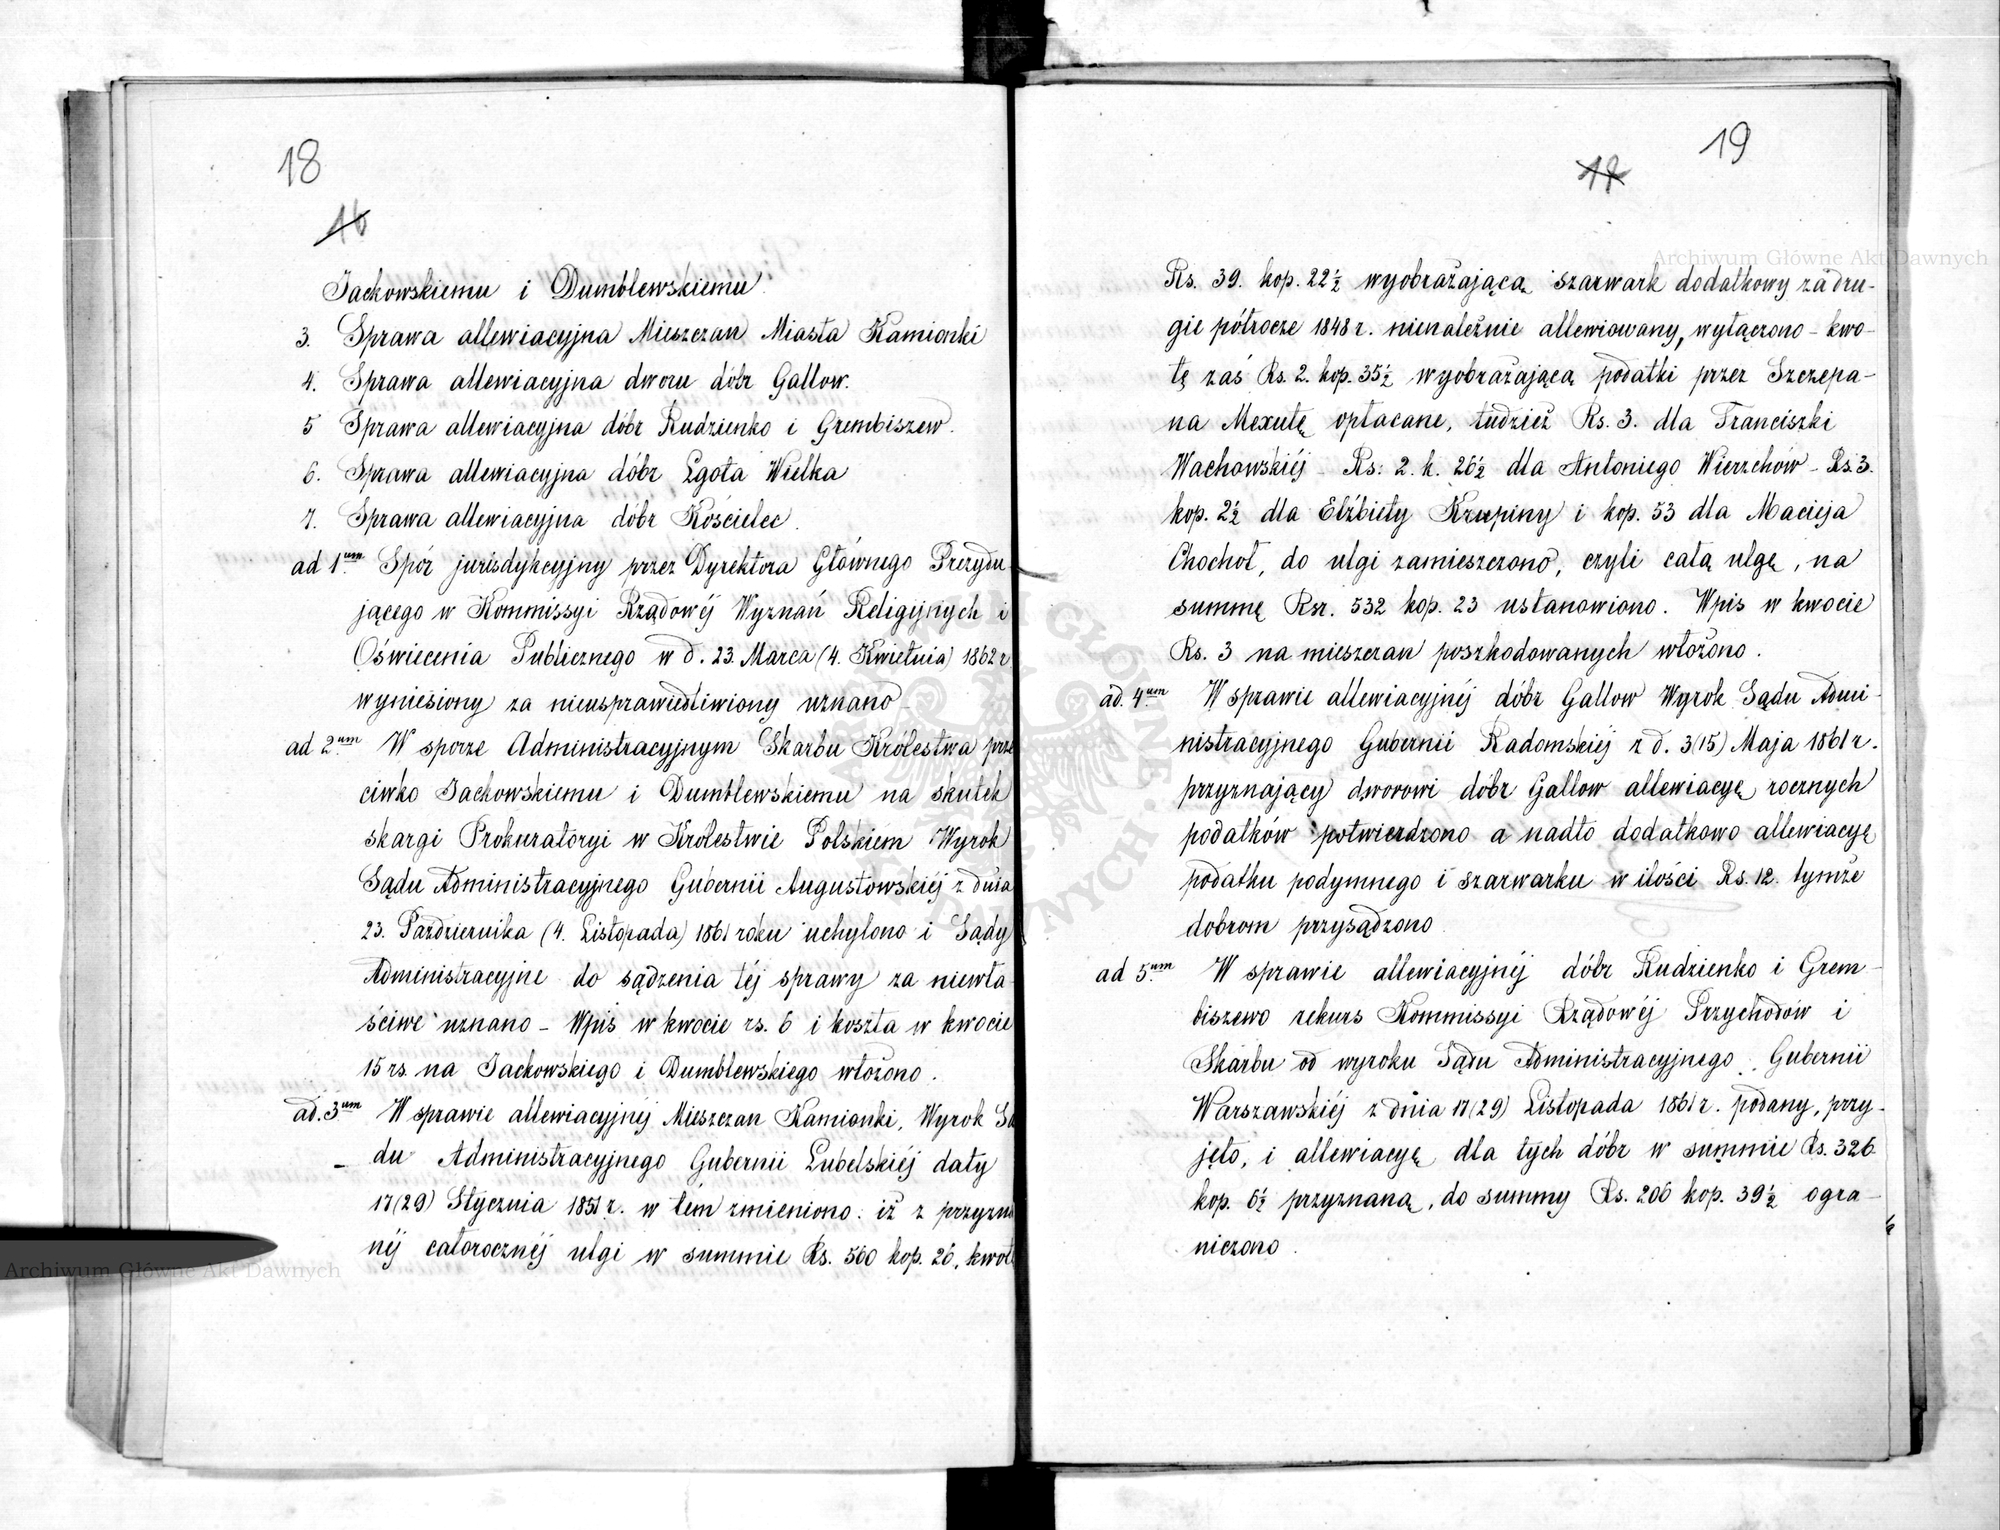 18
16
Jackowskiemu i Dumblewskiemu.
3. Sprawa allewiacyjna Mieszczan Miasta Kamionki
4. Sprawa allewiacyjna dworu dóbr Gallow.
5 Sprawa allewiacyjna dóbr Rudzienko i Grembiszew.
6. Sprawa allewiacyjna dóbr Lgota Wielka
7. Sprawa allewiacyjna dóbr Kościelec.
ad 1um. Spór jurisdykcyjny przez Dyrektora Głównego Prezydu-
jącego w Kommissyi Rządowéj Wyznań Religijnych i
Oświecenia Publicznego w d. 23. Marca (4. Kwietnia) 1862 r
wyniesiony za nieusprawiedliwiony uznano
ad 2um. W sporze Administracyjnym Skarbu Królestwa prze
ciwko Jackowskiemu i Dumblewskiemu na skutek
skargi Prokuratoryi w Królestwie Polskiem Wyrok
Sądu Administracyjnego Gubernii Augustowskiéj z dnia
23. Października (4. Listopada) 1861 roku uchylono i Sądy
Administracyjne do sądzenia téj sprawy za niewła-
ściwe uznano – Wpis w kwocie rs. 6 i koszta w kwocie
15 rs na Jackowskiego i Dumblewskiego włożono.
ad. 3um W sprawie allewiacyjnéj Mieszczan Kamionki, Wyrok Są
du Administracyjnego Gubernii Lubelskiéj daty
17(29) Stycznia 1851 r. w tém zmieniono: iż z przyzna
néj całorocznéj ulgi w summie Rs. 560 kop. 26, kwot
19
17
Rs. 39. kop. 22½ wyobrażającą szarwark dodatkowy za dru-
gie półrocze 1848 r. nienależnie allewiowany, wyłączono – kwo-
tę zaś Rs. 2. kop. 35½ wyobrażającą podatki przez Szczepa-
na Mexutę opłacane, tudzież Rs. 3. dla Franciszki
Wachowskiéj – Rs: 2. k. 26½ dla Antoniego Wierzchów – Rs. 3.
kop. 2½ dla Elżbiety Krupiny i kop. 53 dla Macieja
Chochoł, do ulgi zamieszczono, czyli całą ulgę, na
summę Rsr. 532 kop. 23 ustanowiono. Wpis w kwocie
Rs. 3 na mieszczan poszkodowanych włożono.
ad. 4um. W sprawie allewiacyjnéj dóbr Gallow Wyrok Sądu Admi-
nistracyjnego Gubernii Radomskiéj z d. 3(15) Maja 1861 r.
przyznający dworowi dóbr Gallow allewiacyę rocznych
podatków potwierdzono a nadto dodatkowo allewiacyę
podatku podymnego i szarwarku w ilości Rs. 12. tymże
dobrom przysądzono
ad 5um. W sprawie allewiacyjnéj dóbr Rudzienko i Grem-
biszewo rekurs Kommissyi Rządowéj Przychodów i
Skarbu od wyroku Sądu Administracyjnego Gubernii
Warszawskiéj z dnia 17(29) Listopada 1861 r. podany, przy-
jęto, i allewiacyę dla tych dóbr w summie Rs. 326
kop. 6½ przyznaną, do summy Rs. 206 kop. 39½ ogra-
niczono.
Archiwum Główne Akt Dawnych
Archiwum Główne Akt Dawnych